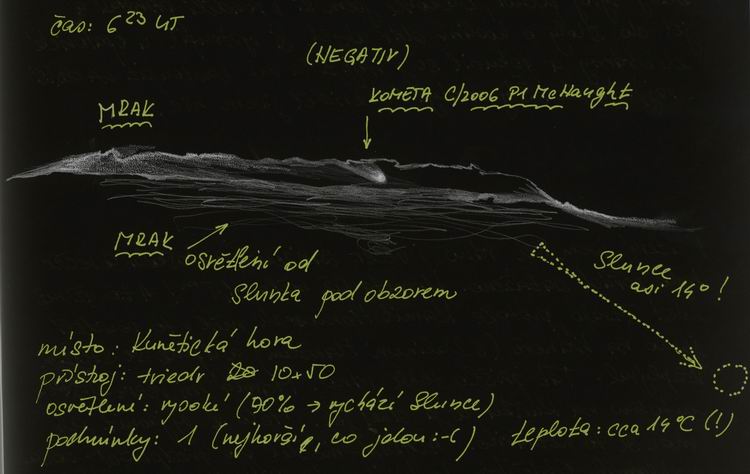 čas: 6 23 UT
(NEGATIV)
KOMETA C/2006 P1 McNaught
MRAK
MRAK
osvětlení od
Slunka pod obzorem
Slunce
asi 14°!
místo: Kunětická hora
přístroj: triedr 10x50
osvětlení: vysoké (90% → vychází Slunce)
podmínky: 1 (nejhorší, co jdou :-( )
teplota: cca 14°C (!)